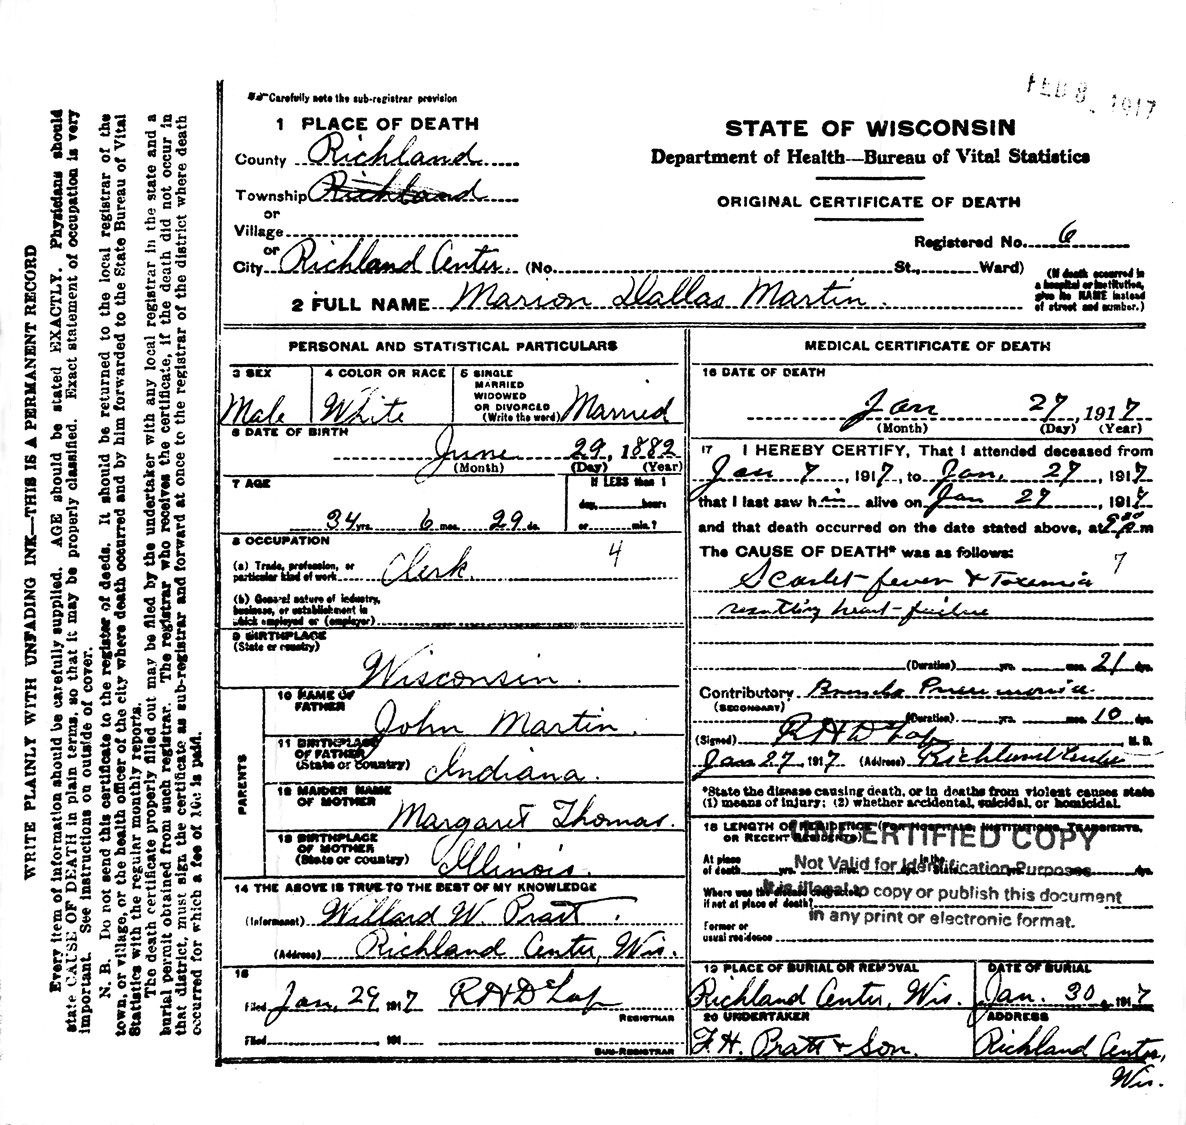 FEB 8 1917
Carefully note the sub-registrar provision
1 PLACE OF DEATH
County Richland
Township Richland
or
Village
or
City Richland Center (No. St., Ward)
2 FULL NAME Marion Dallas Martin.
STATE OF WISCONSIN
Department of Health—Bureau of Vital Statistics
ORIGINAL CERTIFICATE OF DEATH
Registered No. 6
(If death occurred in
a hospital or institution,
give its NAME instead
of street and number.)
PERSONAL AND STATISTICAL PARTICULARS
3 SEX
Male
4 COLOR OR RACE
White
5 SINGLE
MARRIED
WIDOWED
OR DIVORCED
(Write the word) Married
6 DATE OF BIRTH
June 29, 1882
(Month) (Day) (Year)
7 AGE
34 yrs. 6 mos. 29 ds.
If LESS than 1
day, hours
or min.?
8 OCCUPATION
(a) Trade, profession, or
particular kind of work Clerk. 4
(b) General nature of industry,
business, or establishment in
which employed or (employer)
9 BIRTHPLACE
(State or country)
Wisconsin.
PARENTS
10 NAME OF
FATHER
John Martin.
11 BIRTHPLACE
OF FATHER
(State or country) Indiana.
12 MAIDEN NAME
OF MOTHER
Margaret Thomas.
13 BIRTHPLACE
OF MOTHER
(State or country) Illinois.
14 THE ABOVE IS TRUE TO THE BEST OF MY KNOWLEDGE
(Informant) Willard W. Pratt.
(Address) Richland Center, Wis.
15
Filed Jan. 29, 1917 R H DeLap
REGISTRAR
Filed 191
SUB-REGISTRAR
MEDICAL CERTIFICATE OF DEATH
16 DATE OF DEATH
Jan 27, 1917
(Month) (Day) (Year)
17 I HEREBY CERTIFY, That I attended deceased from
Jan 7, 1917, to Jan, 27, 1917
that I last saw him alive on Jan 27, 1917
and that death occurred on the date stated above, at P. m
The CAUSE OF DEATH* was as follows: 7
Scarlet fever & Toxemia
resulting heart-failure
(Duration) yrs. mos. 21 dys.
Contributory Broncho Pneumonia
(SECONDARY)
(Duration) yrs. mos. 10 dys.
(Signed) R H DeLap M. D.
Jan 27, 1917 (Address) Richland Center
*State the disease causing death, or in deaths from violent causes state
(1) means of injury; (2) whether accidental, suicidal, or homicidal.
18 LENGTH OF RESIDENCE (FOR HOSPITALS, INSTITUTIONS, TRANSIENTS,
OR RECENT RESIDENTS)
UNCERTIFIED COPY
At place
of death
Not Valid for Identification Purposes
Where was
if not at place of death?
It is illegal to copy or publish this document
in any print or electronic format.
Former or
usual residence
19 PLACE OF BURIAL OR REMOVAL
Richland Center, Wis.
DATE OF BURIAL
Jan. 30, 1917
20 UNDERTAKER
F. H. Pratt & Son.
ADDRESS
Richland Center,
Wis.
WRITE PLAINLY WITH UNFADING INK—THIS IS A PERMANENT RECORD
Every item of information should be carefully supplied. AGE should be stated EXACTLY. Physicians should
state CAUSE OF DEATH in plain terms, so that it may be properly classified. Exact statement of occupation is very
important. See instructions on outside of cover.
N. B. Do not send this certificate to the register of deeds. It should be returned to the local registrar of the
town, or village, or the health officer of the city where death occurred and by him forwarded to the State Bureau of Vital
Statistics with the regular monthly reports.
The death certificate properly filled out may be filed by the undertaker with any local registrar in the state and a
burial permit obtained from such registrar. The registrar who receives the certificate, if the death did not occur in
that district, must sign the certificate as sub-registrar and forward at once to the registrar of the district where death
occurred for which a fee of 10c is paid.